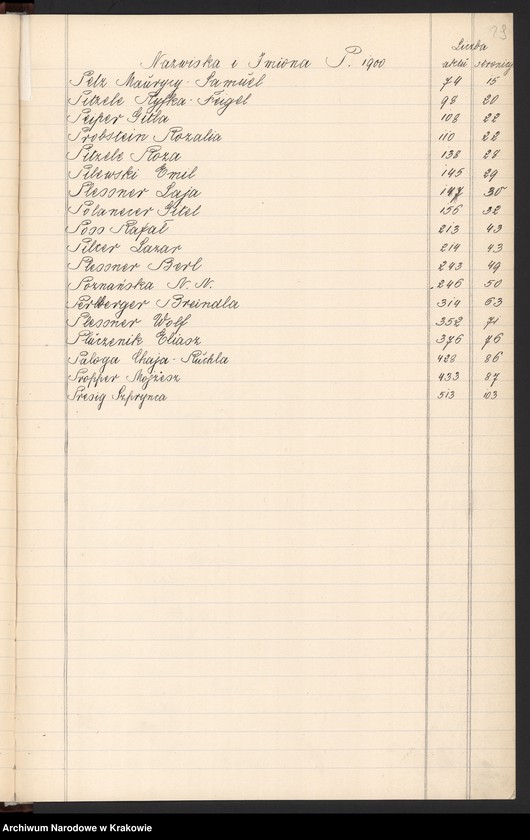 23
Liczba
Nazwiska i Imiona P. 1900 aktu stronicy
Pelz Maurycy-Samuel 74 15
Pitzele Ryfka-Feigel 98 20
Peiper Gitla 108 22
Probstein Rozalia 110 22
Pitzele Roza 138 28
Pilewski Emil 145 29
Plessner Laja 147 30
Polanecer Gitel 156 32
Poss Rafał 213 43
Pilcer Lazar 214 43
Plessner Berl 243 49
Poznańska N. N. 246 50
Perlberger Breindla 314 63
Plessner Wolf 352 71
Pluczenik Eliasz 376 76
Paloga Chaja-Ruchla 428 86
Propper Mojżesz 433 87
Presig Szprynca 513 103
Archiwum Narodowe w Krakowie